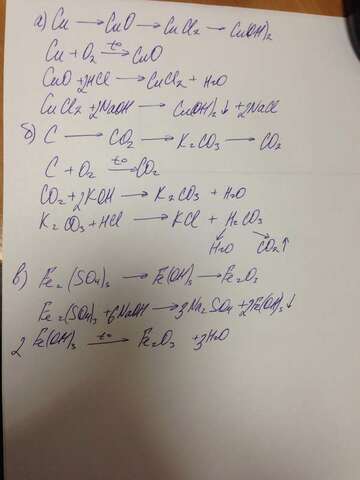 а) Cu → CuO → CuCl₂ → Cu(OH)₂
Cu + O₂ →t° CuO
CuO + 2HCl → CuCl₂ + H₂O
CuCl₂ + 2NaOH → Cu(OH)₂↓ + 2NaCl
б) C → CO₂ → K₂CO₃ → CO₂
C + O₂ →t° CO₂
CO₂ + 2KOH → K₂CO₃ + H₂O
K₂CO₃ + HCl → KCl + H₂CO₃
H₂O CO₂↑
в) Fe₂(SO₄)₃ → Fe(OH)₃ → Fe₂O₃
Fe₂(SO₄)₃ + 6NaOH → 3Na₂SO₄ + 2Fe(OH)₃↓
2Fe(OH)₃ →t° Fe₂O₃ + 3H₂O